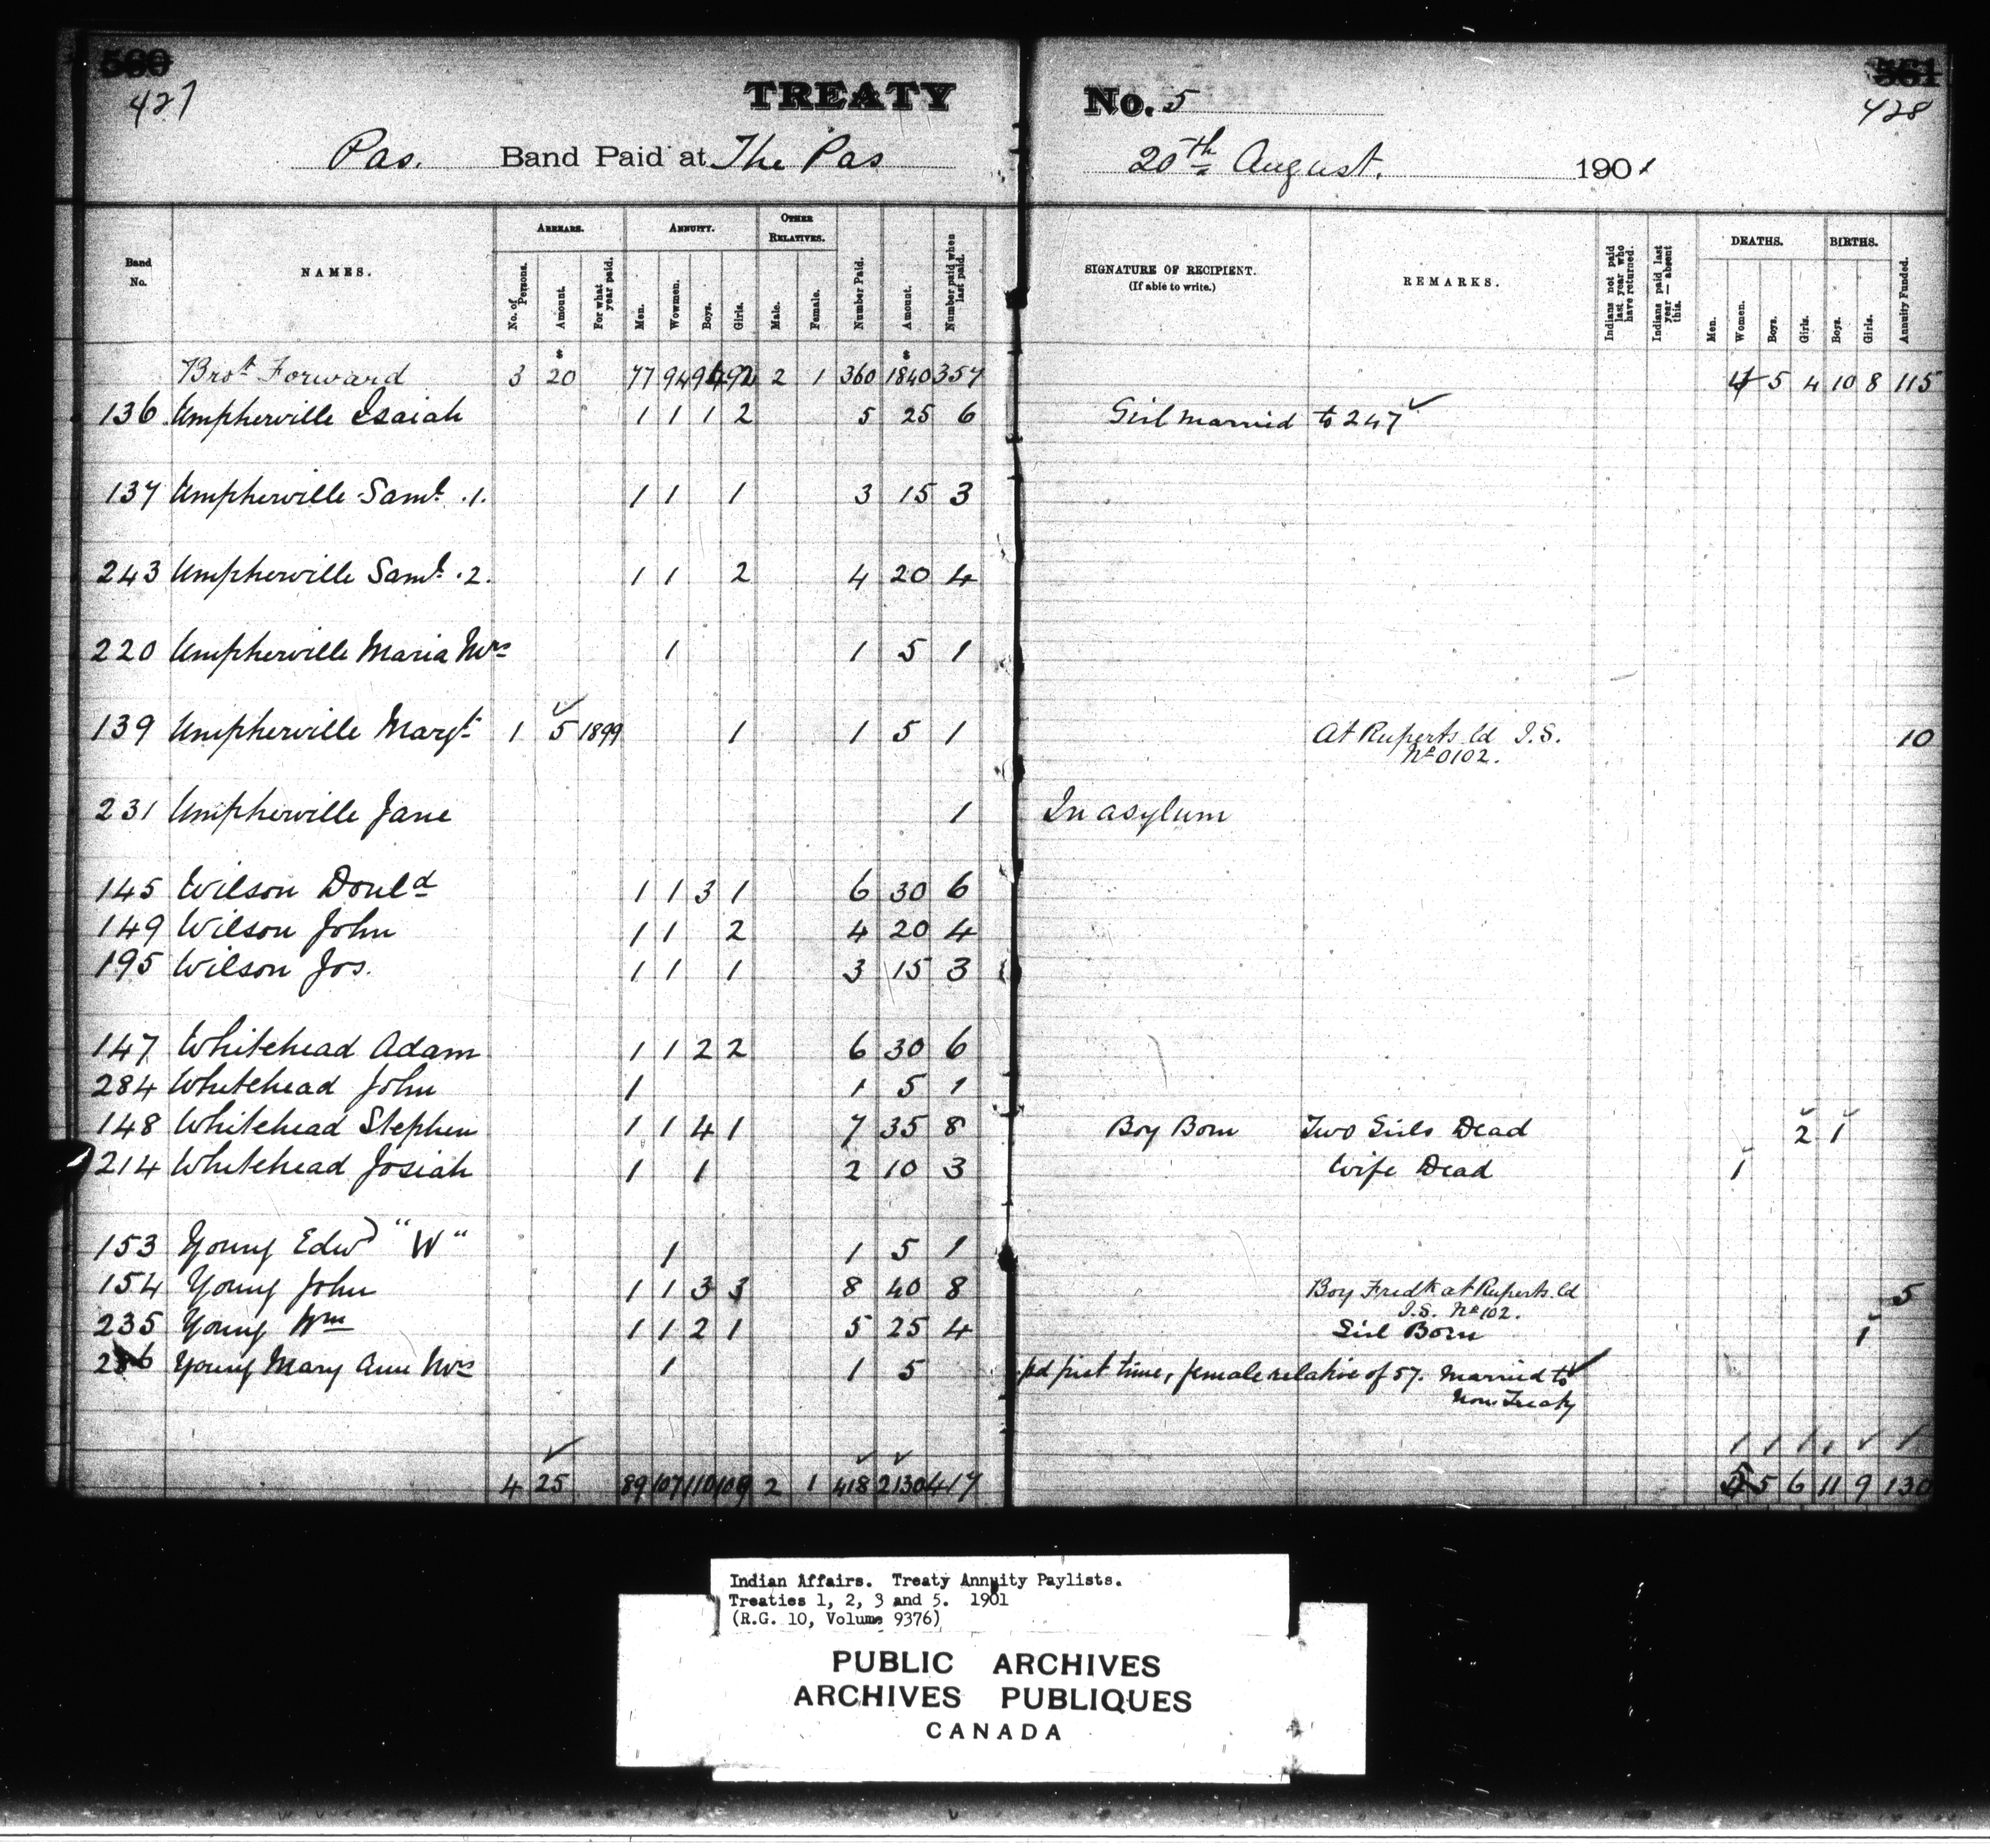 427
TREATY No. 5
428
Pas. Band Paid at The Pas 20th August. 1901
Band No.
NAMES.
ARREARS.
No. of Persons.
Amount.
For what year paid.
ANNUITY.
Men.
Wowmen.
Boys.
Girls.
OTHER RELATIVES.
Male.
Female.
Number Paid.
Amount.
Number paid when last paid.
SIGNATURE OF RECIPIENT.
(If able to write.)
REMARKS.
Indians not paid last year who have returned.
Indians paid last year — absent this.
DEATHS.
Men.
Women.
Boys.
Girls.
BIRTHS.
Boys.
Girls.
Annuity Funded.
Brot Forward 3 $20 77 94 92 2 1 360 $1840 357 4 5 4 10 8 115
136 Umpherville Isaiah 1 1 1 2 5 25 6 Girl married to 247
137 Umpherville Saml .1. 1 1 1 3 15 3
243 Umpherville Saml .2. 1 1 2 4 20 4
220 Umpherville Maria Mrs 1 1 5 1
139 Umpherville Margt 1 5 1899 1 1 5 1 At Ruperts ld I.S. 10
No 0102.
231 Umpherville Jane 1 In asylum
145 Wilson Donld 1 1 3 1 6 30 6
149 Wilson John 1 1 2 4 20 4
195 Wilson Jos. 1 1 1 3 15 3
147 Whitehead Adam 1 1 2 2 6 30 6
284 Whitehead John 1 1 5 1
148 Whitehead Stephen 1 1 4 1 7 35 8 Boy Born Two Girls Dead 2 1
214 Whitehead Josiah 1 1 2 10 3 Wife Dead 1
153 Young Edwd "W" 1 1 5 1
154 Young John 1 1 3 3 8 40 8 Boy Fredk at Ruperts ld 5
I.S. No 102.
235 Young Wm 1 1 2 1 5 25 4 Girl Born 1
Young Mary Ann Mrs 1 1 5 pd first time, female relative of 57. Married to
Non Treaty
4 25 89 107 110 109 2 1 418 2130 417 5 5 6 11 9 130
Indian Affairs. Treaty Annuity Paylists.
Treaties 1, 2, 3 and 5. 1901
(R.G. 10, Volume 9376)
PUBLIC ARCHIVES
ARCHIVES PUBLIQUES
CANADA